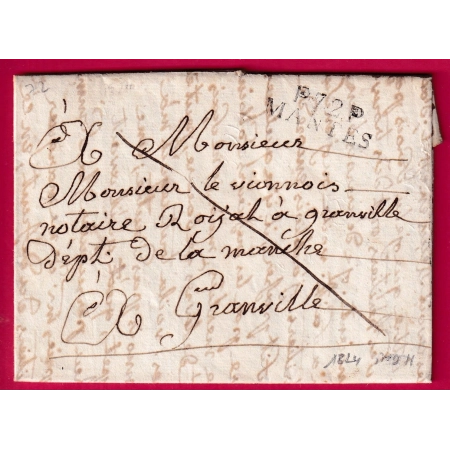 22
P.72.P
MANTES
À Monsieur
Monsieur le vionnois
notaire Roijal à granville
dépt. de la manche
À Granville
1824